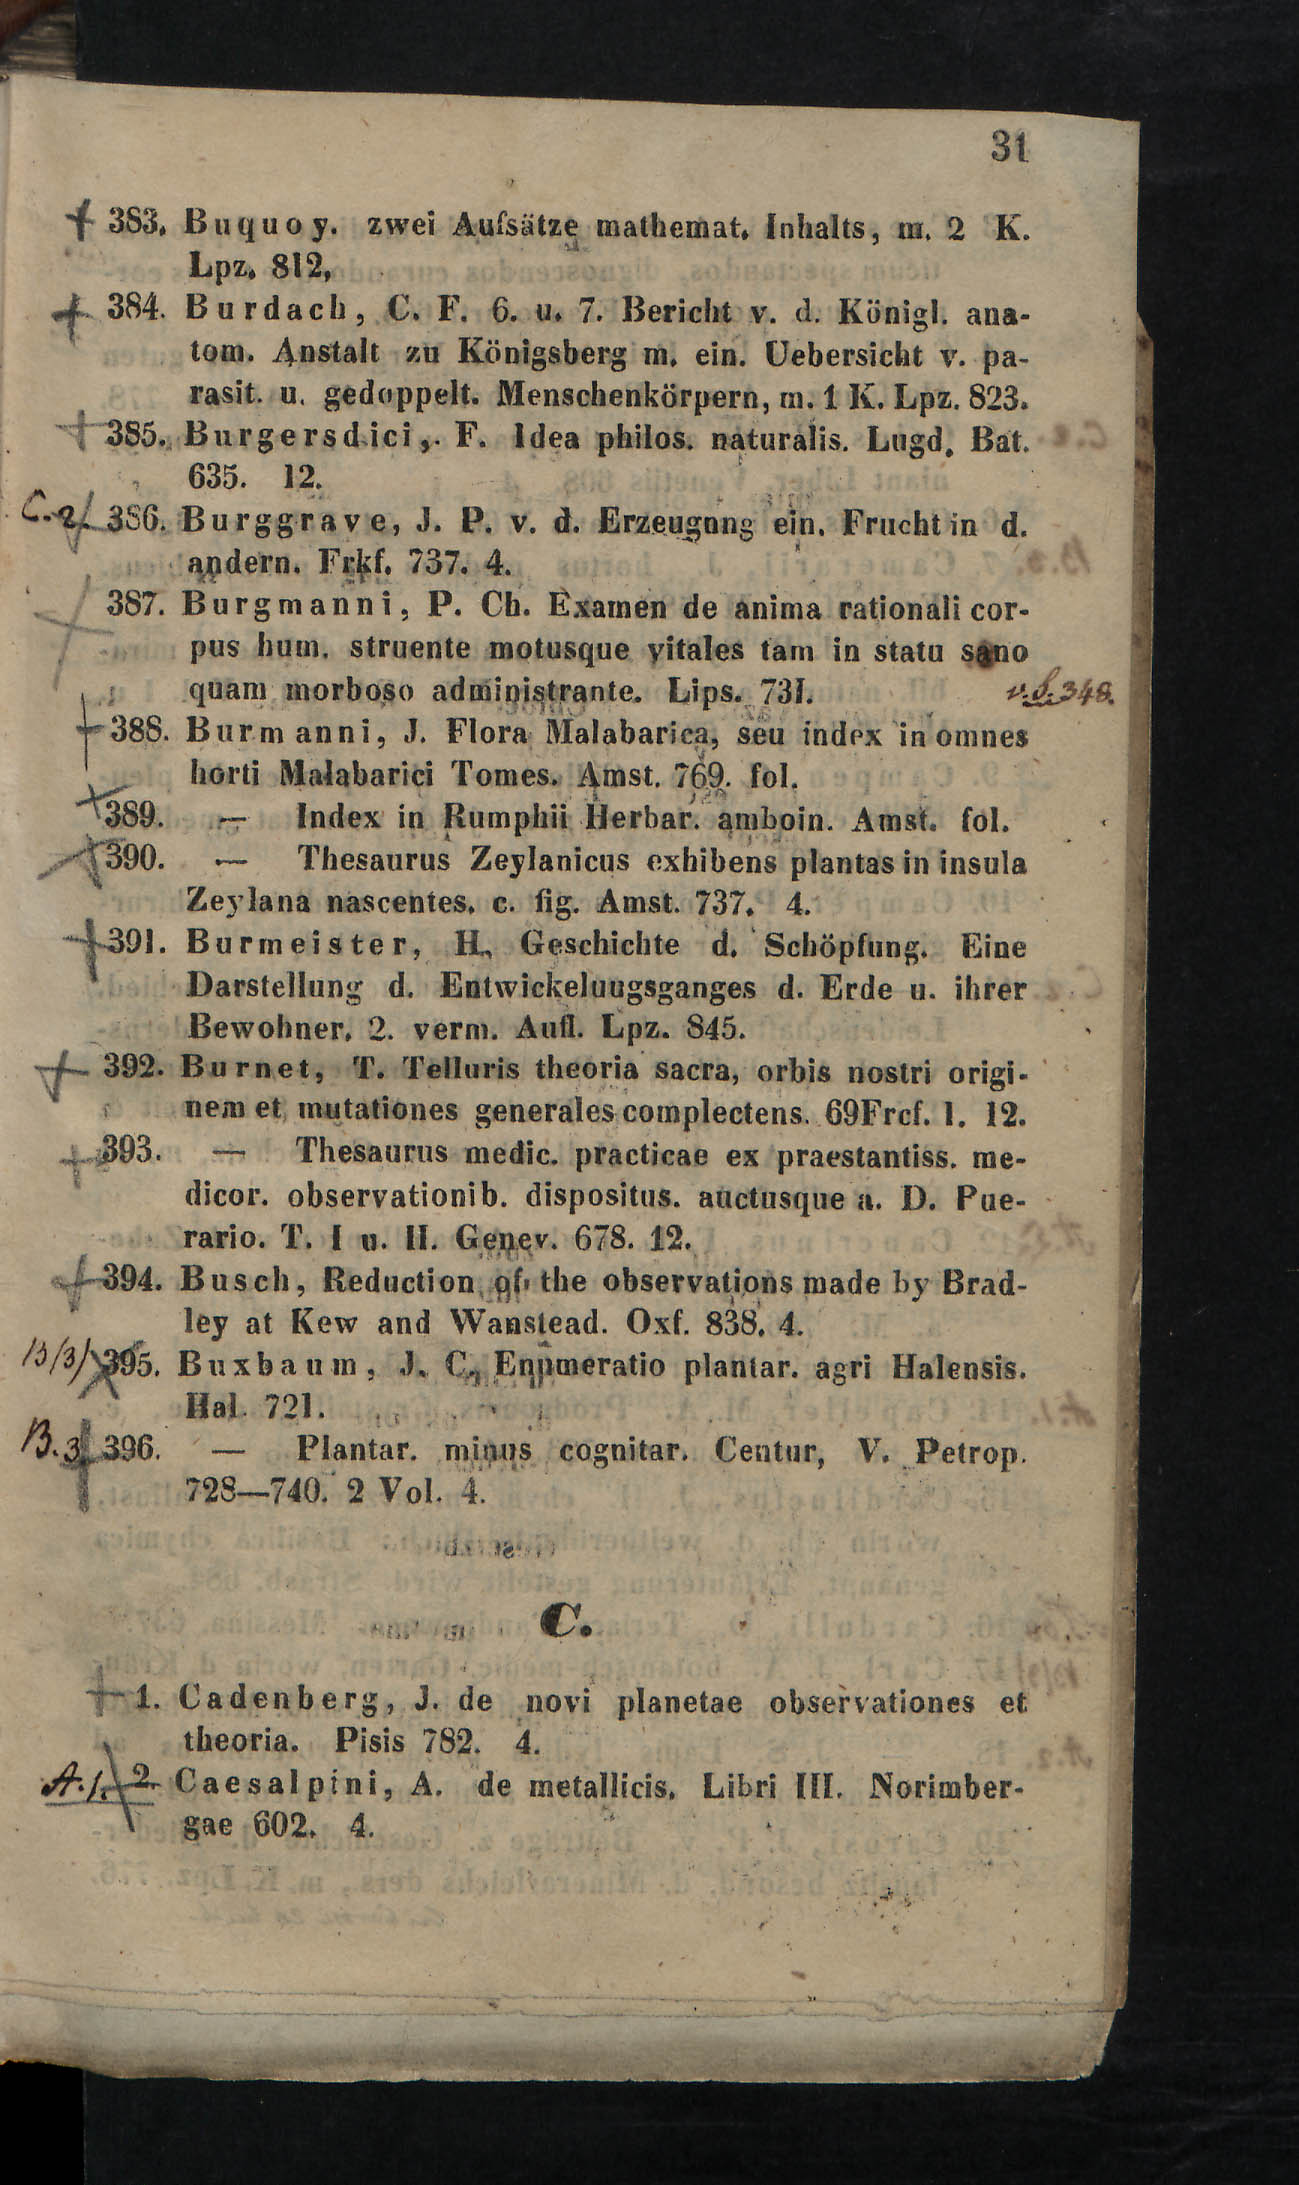 31
383. Buquoy. zwei Aufsätze mathemat. Inhalts, m. 2 K.
Lpz. 812.
384. Burdach, C. F. 6. u. 7. Bericht v. d. Königl. ana-
tom. Anstalt zu Königsberg m. ein. Uebersicht v. pa-
rasit. u. gedoppelt. Menschenkörpern, m. 1 K. Lpz. 823.
385. Burgersdici, F. Idea philos. naturalis. Lugd. Bat.
635. 12.
C. 2/ 386. Burggrave, J. P. v. d. Erzeugung ein. Frucht in d.
andern. Frkf. 737. 4.
387. Burgmanni, P. Ch. Examen de anima rationali cor-
pus hum. struente motusque vitales tam in statu sano
quam morboso administrante. Lips. 731. v. S. 348.
388. Burmanni, J. Flora Malabarica, seu index in omnes
horti Malabarici Tomes. Amst. 769. fol.
389. — Index in Rumphii Herbar. amboin. Amst. fol.
390. — Thesaurus Zeylanicus exhibens plantas in insula
Zeylana nascentes. c. fig. Amst. 737. 4.
391. Burmeister, H. Geschichte d. Schöpfung. Eine
Darstellung d. Entwickeluugsganges d. Erde u. ihrer
Bewohner. 2. verm. Aufl. Lpz. 845.
392. Burnet, T. Telluris theoria sacra, orbis nostri origi-
nem et mutationes generales complectens. 69Frcf. 1. 12.
393. — Thesaurus medic. practicae ex praestantiss. me-
dicor. observationib. dispositus. auctusque a. D. Pue-
rario. T. I u. II. Genev. 678. 12.
394. Busch, Reduction of the observations made by Brad-
ley at Kew and Wanstead. Oxf. 838. 4.
B/3/ 395. Buxbaum, J. C. Enumeratio plantar. agri Halensis.
Hal. 721.
B. 3 396. — Plantar. minus cognitar. Centur, V. Petrop.
728—740. 2 Vol. 4.
C.
1. Cadenberg, J. de novi planetae observationes et
theoria. Pisis 782. 4.
A. 1. 2. Caesalpini, A. de metallicis. Libri III. Norimber-
gae 602. 4.